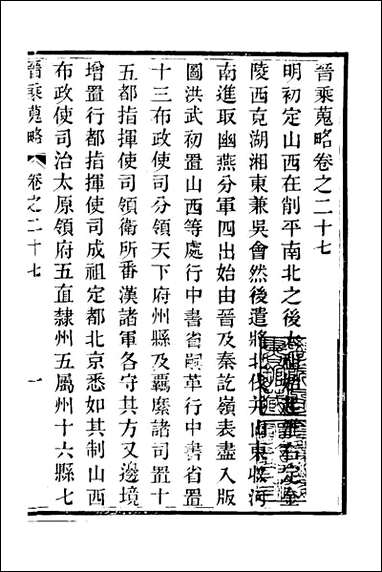 晉乘蒐略卷之二十七
明初定山西在削平南北之後太祖
陵西克湖湘東兼吳會然後遣將北伐并山東收河
南進取幽燕分軍四出始由晉及秦訖嶺表盡入版
圖洪武初置山西等處行中書省嗣革行中書省置
十三布政使司分領天下府州縣及羈縻諸司置十
五都指揮使司領衛所番漢諸軍各守其方又邊境
增置行都指揮使司成祖定都北京悉如其制山西
布政使司治太原領府五直隸州五屬州十六縣七
晉乘蒐略
卷之二十七
一